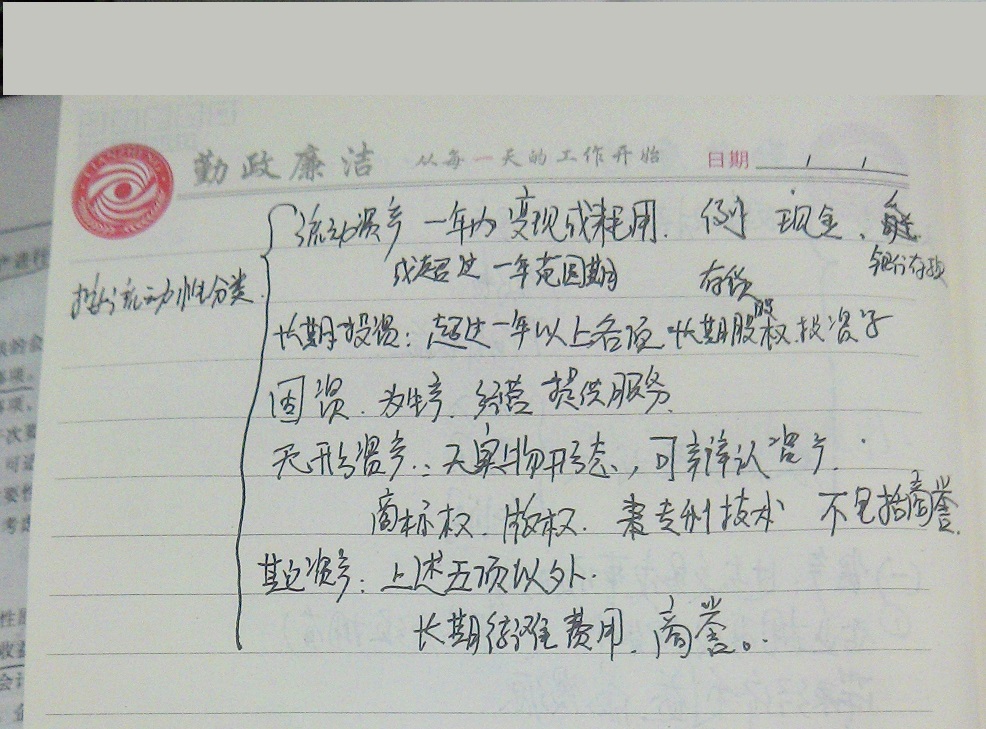 勤政廉洁 从每一天的工作开始 日期 / /
流动资产 一年内变现或耗用. 例 现金、
银行存款
或超过一年范围期 存货
按流动性分类
长期投资: 超过一年以上各项 长期股权.投资
固资 为生产. 经营 提供服务.
无形资产: 无实物形态, 可辩认资产.
商标权. 版权. 专利技术 不包括商誉.
其它资产: 上述五项以外.
长期待摊费用. 商誉。